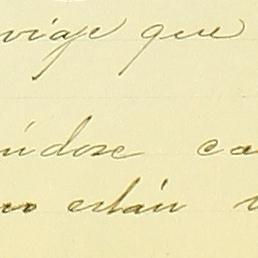 viaje que
ndose ca
están